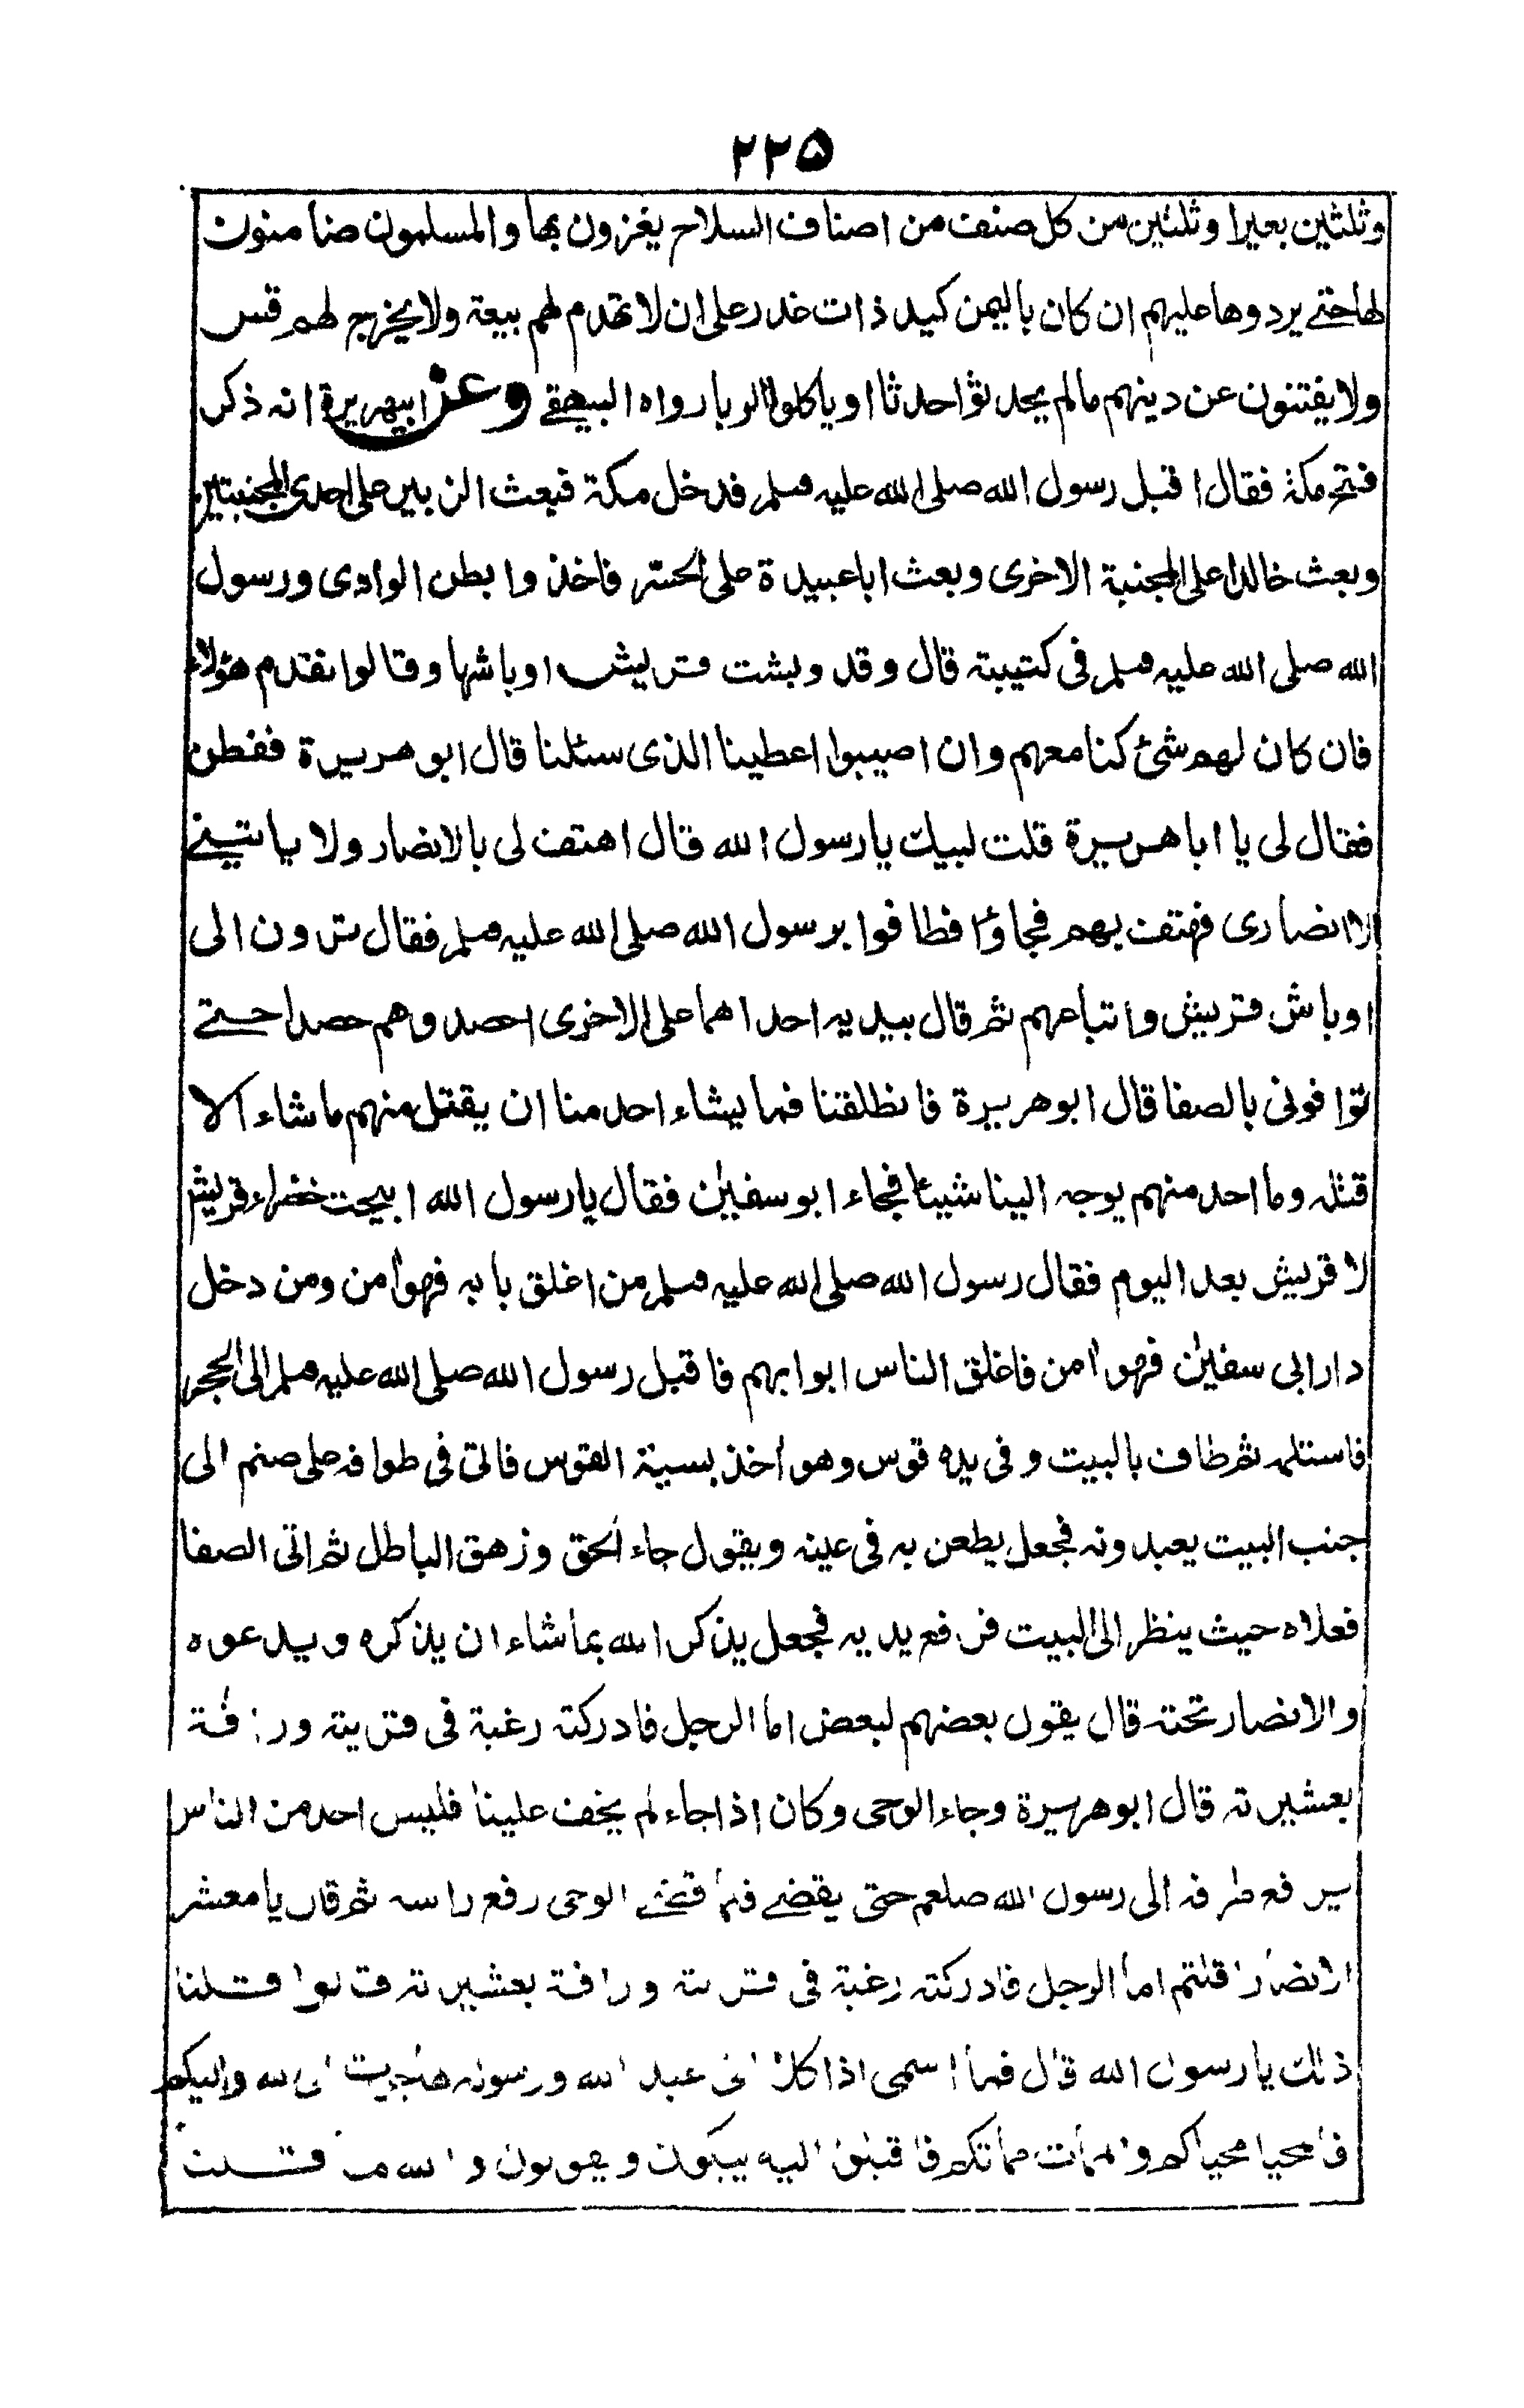 ۲۲۵
وثلثين بعيرا وثلثين من كل صنف من اصناف السلاح يغزون بها والمسلمون ضامنون
لها حتے يردوها عليهم ان كان باليمن كيد ذات غدر على ان لا تهدم لهم بيعة ولا يخرج لهم قس
ولا يفتنون عن دينهم مالم يحدثوا حدثا او ياكلوا الربا رواه البيهقے وعن ابيهريرة انه ذكر
فتح مكة فقال اقبل رسول الله صلى الله عليه وسلم فدخل مكة فبعث الزبير على احدى المجنبتين
وبعث خالدا على المجنبة الاخرى وبعث ابا عبيدة على الحسّر فاخذوا بطن الوادى ورسول
الله صلى الله عليه وسلم فى كتيبته قال وقد وبشت قريش اوباشها وقالوا نقدم هؤلاء
فان كان لهم شئ كنا معهم وان اصيبوا اعطينا الذى سئلنا قال ابو هريرة ففطن
فقال لى يا ابا هريرة قلت لبيك يا رسول الله قال اهتف لى بالانصار ولا ياتينے
الا انصارى فهتف بهم فجاؤا فطافوا برسول الله صلى الله عليه وسلم فقال ترون الى
اوباش قريش واتباعهم ثم قال بيديه احداهما على الاخرى احصدوهم حصدا حتے
توافونى بالصفا قال ابو هريرة فانطلقنا فما يشاء احد منا ان يقتل منهم ما شاء الا
قتله وما احد منهم يوجه الينا شيئا فجاء ابو سفيٰن فقال يا رسول الله ابيحت خضراء قريش
لا قريش بعد اليوم فقال رسول الله صلى الله عليه وسلم من اغلق بابه فهو اٰمن ومن دخل
دار ابى سفيٰن فهو اٰمن فاغلق الناس ابوابهم فاقبل رسول الله صلى الله عليه وسلم الى الحجر
فاستلمه ثم طاف بالبيت وفى يده قوس وهو اٰخذ بسية القوس فاتى فى طوافه على صنم الى
جنب البيت يعبدونه فجعل يطعن به فى عينه ويقول جاء الحق وزهق الباطل ثم اتى الصفا
فعلاه حيث ينظر الى البيت فرفع يديه فجعل يذكر الله بما شاء ان يذكره ويدعوه
والانصار تحته قال يقول بعضهم لبعض اما الرجل فادركته رغبة فى قريته ورافة
بعشيرته قال ابو هريرة وجاء الوحى وكان اذا جاء لم يخف علينا فليس احد من الناس
يرفع طرفه الى رسول الله صلعم حتى يقضے فلما قضے الوحى رفع راسه ثم قال يا معشر
الانصار اقلتم اما الرجل فادركته رغبة فى قريته ورافة بعشيرته قالوا قلنا
ذلك يا رسول الله قال فما اسمى اذا كلا انى عبد الله ورسوله هاجرت الى الله واليكم
فالمحيا محياكم والممات مماتكم فاقبلوا اليه يبكون ويقولون والله ما قلنا